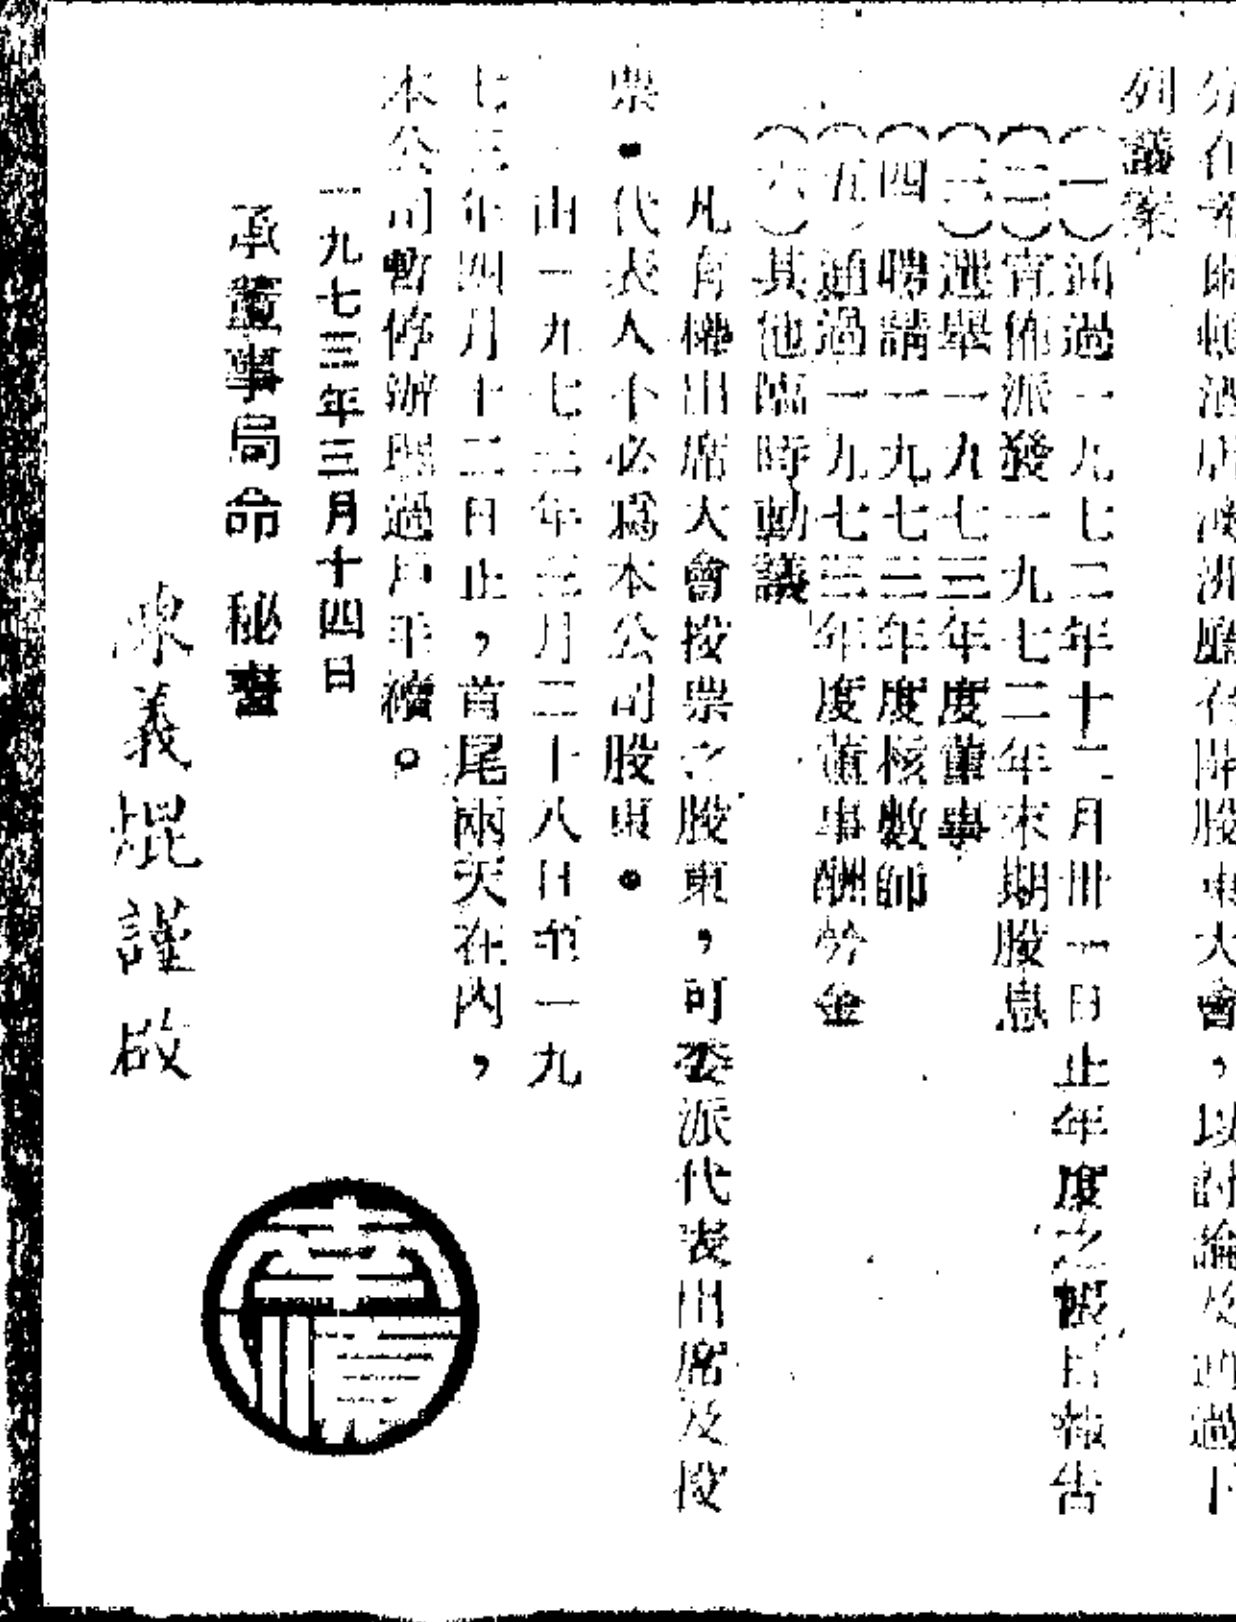 分在希爾頓酒店波洲廳召開股東大會，以討論及通過下
列議案
（一）通過一九七二年十二月卅一日止年度之帳目報告
（二）宣佈派發一九七二年末期股息
（三）選舉一九七三年度董事
（四 聘請一九七三年度核數師
（五）通過一九七三年度董事酬勞金
（六）其他臨時動議
凡有權出席大會投票之股東，可委派代表出席及投
票。代表人不必爲本公司股東。
由一九七三年三月二十八日至一九
七三年四月十二日止，首尾兩天在內，
本公司暫停辦理過戶手續。
一九七三年三月十四日
承董事局命 秘書
陳義焜謹啟